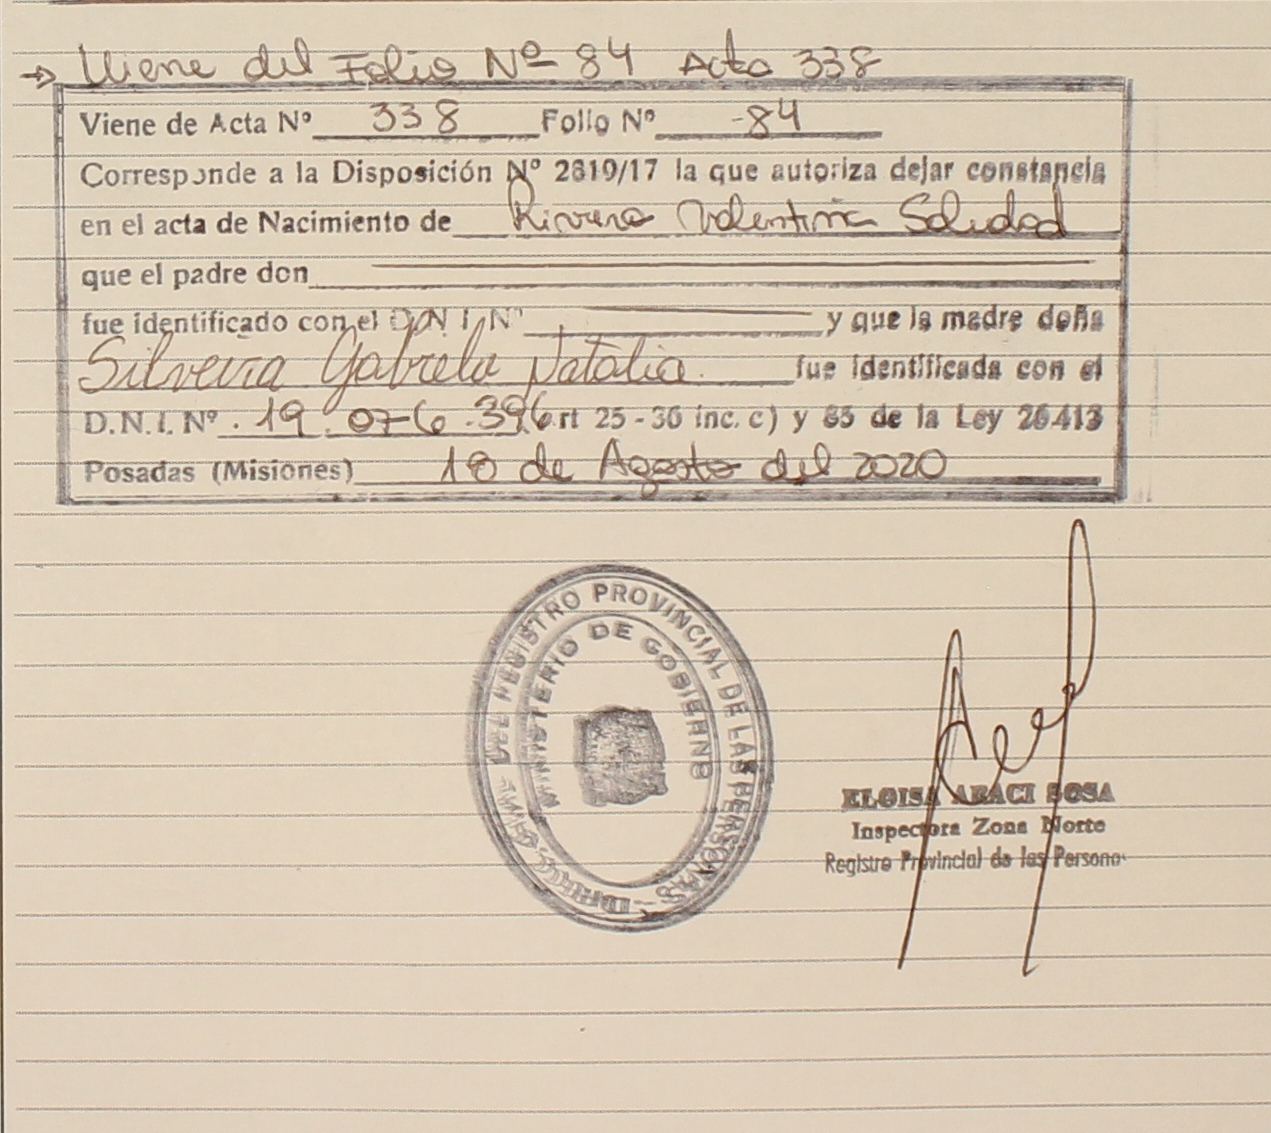 → Viene del Folio Nº 84 Acta 338
Viene de Acta Nº 338 Folio Nº 84
Corresponde a la Disposición Nº 2819/17 la que autoriza dejar constancia
en el acta de Nacimiento de Rivero Valentina Soledad
que el padre don
fue identificado con el D.N.I. Nº y que la madre doña
Silveira Gabriela Natalia. fue identificada con el
D.N.I. Nº 19.076.396 rt 25-36 inc. c) y 85 de la Ley 26413
Posadas (Misiones) 18 de Agosto del 2020
DEL REGISTRO PROVINCIAL DE LAS PERSONAS
MINISTERIO DE GOBIERNO
ELOISA ARACI SOSA
Inspectora Zona Norte
Registro Provincial de las Persona